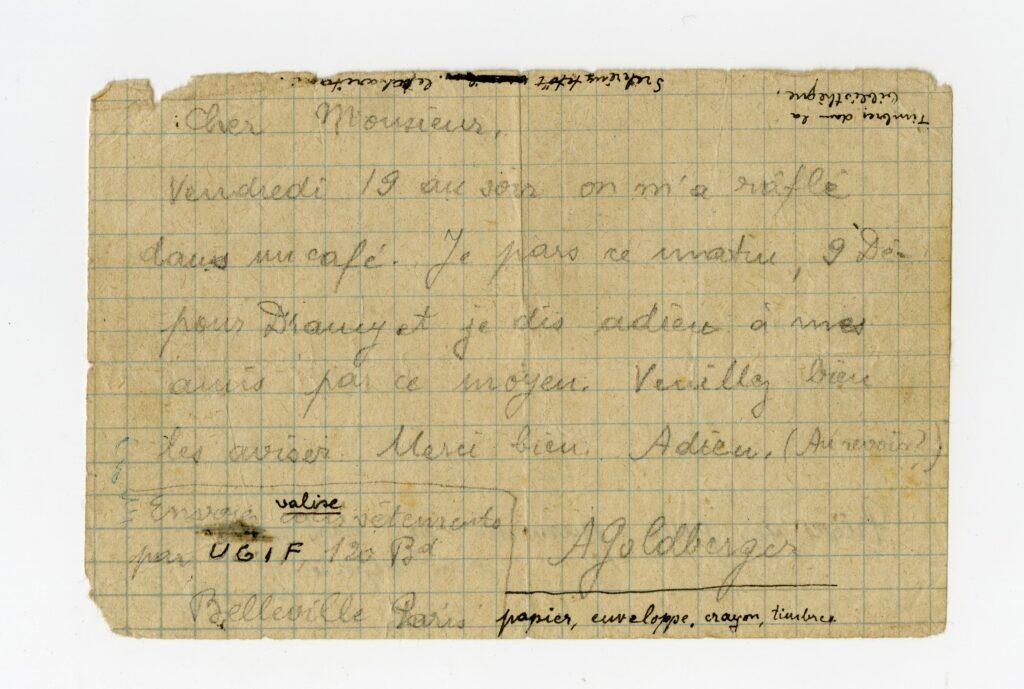 Timbres dans la
bibliothèque,
Cher Monsieur,
Vendredi 19 au soir on m'a râflé
dans un café. Je pars ce matin, 9 Dé-
pour Drancy et je dis adieu à mes
amis par ce moyen. Veuillez bien
les aviser. Merci bien. Adieu, (Au revoir?)
valise
Envoyer sous vêtements
par UGIF, 120 Bd
Belleville Paris
AGoldberger
papier, enveloppe, crayon, timbres